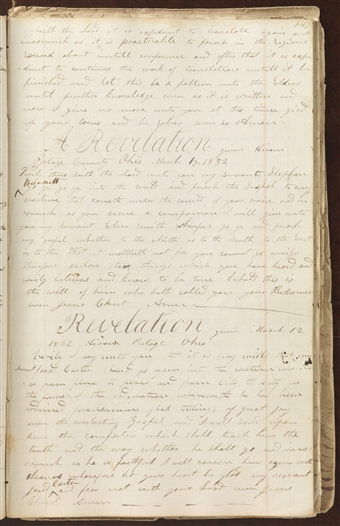 saith the Lord it is expedient to translate again and
inasmuch as it is practicable to preach in the regions
round about until conference and after that it is expe
dient to continue the work of translation until it be
finished and let this be a pattern unto the Elders
until further knowledge even as it is written and
now I give no more unto you at this time gird
up your loins and be sober even so Amen
A Revelation given Hiram
Portage County Ohio March 1832
Verily thus saith the Lord unto you my servant Stephen
Burnett
go ye go ye into the world and preach the Gospel to every
creature that cometh under the sound of your voice and in
asmuch as you desire a companion I will give unto
you my servant Eden Smith go ye and preach
my gospel whether to the North or to the South to the East
or to the West it mattereth not for you cannot go amiss
therefore declare the things which you have heard and
verily believe and know to be true behold this is
the will of him who hath called you your Redeemer
even Jesus Christ Amen
Revelation given March 12
1832 Hiram Portage Ohio
Verily I say unto you that it is my will that my
servant Jared Carter should go again into the eastern
from place to place and from City to City in
the power of the ordination wherewith he has been
ordained proclaiming glad tidings of great joy
even the everlasting Gospel and I will send upon
him the comforter which shall teach him the
truth and the way whither he shall go and inas
much as he is faithful I will crown him again with
sheaves wherefore let your heart be glad my servant
Jared Carter and fear not saith your Lord Jesus
Christ Amen